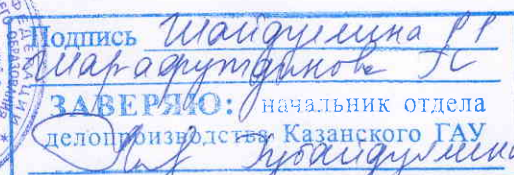 Подпись Шайдуллина РР
Шарафутдинова РС
ЗАВЕРЯЮ: начальник отдела
делопроизводства Казанского ГАУ